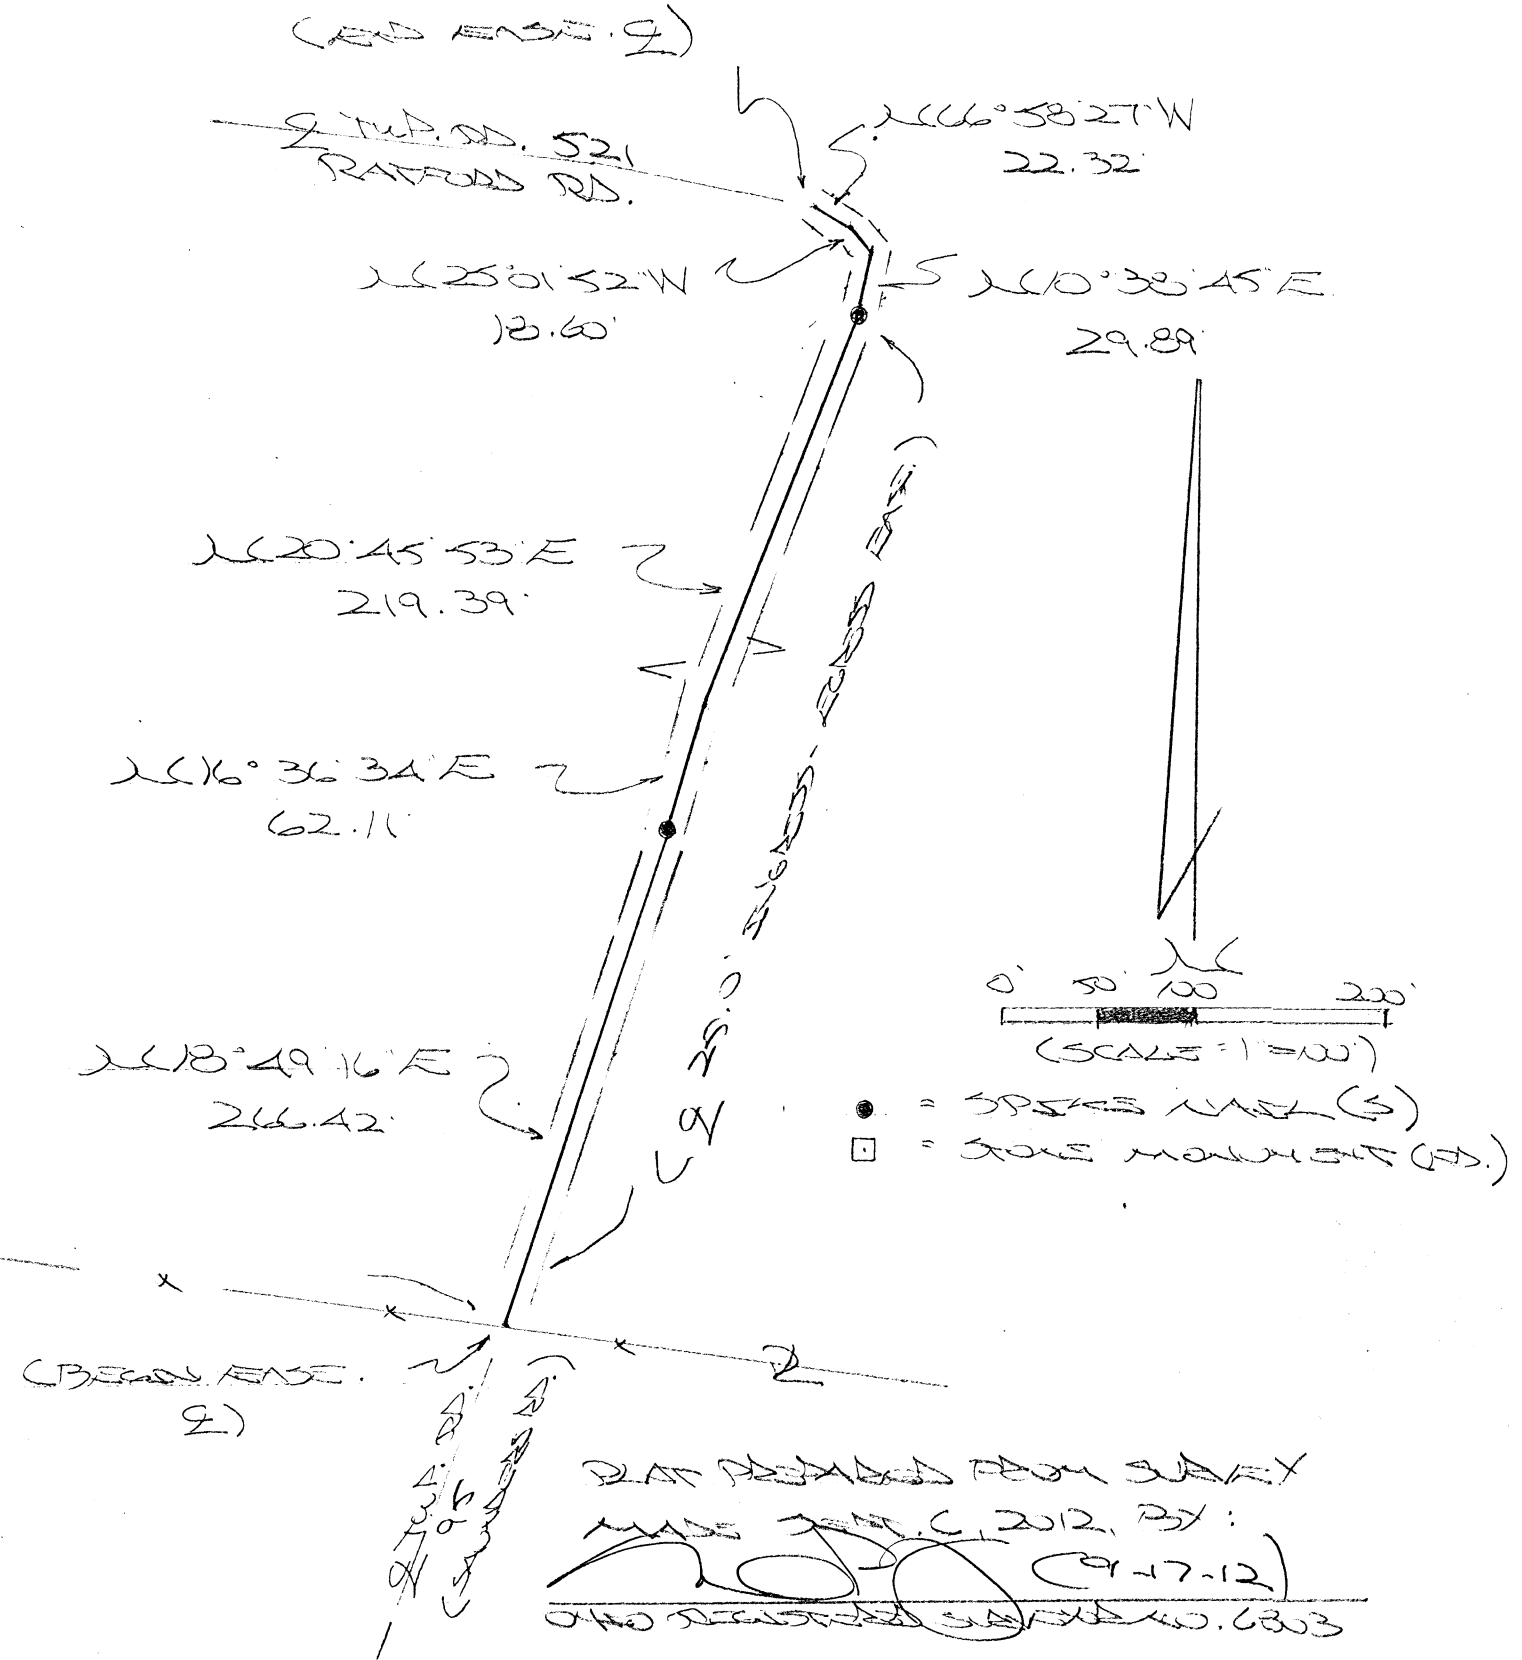 (END EASE. ℄)
℄ TWP. RD. 521
RAFFORD RD.
N66°58'27"W
22.32'
N25°01'52"W
18.60'
N10°38'45"E
29.89'
N20°45'53"E
219.39'
N16°36'34"E
62.11'
N18°49'16"E
266.42'
(℄ 25.0' INGRESS - EGRESS EASE.)
N
0' 50' 100' 200'
(SCALE: 1"=100')
● = SPIKE NAIL (S)
⊡ = STONE MONUMENT (FD.)
(BEGIN EASE.
℄)
℄ TWP. RD.
95
PLAT PREPARED FROM SURVEY
MADE SEPT. 6, 2012, BY:
(9-17-12)
OHIO REGISTERED SURVEYOR NO. 6803